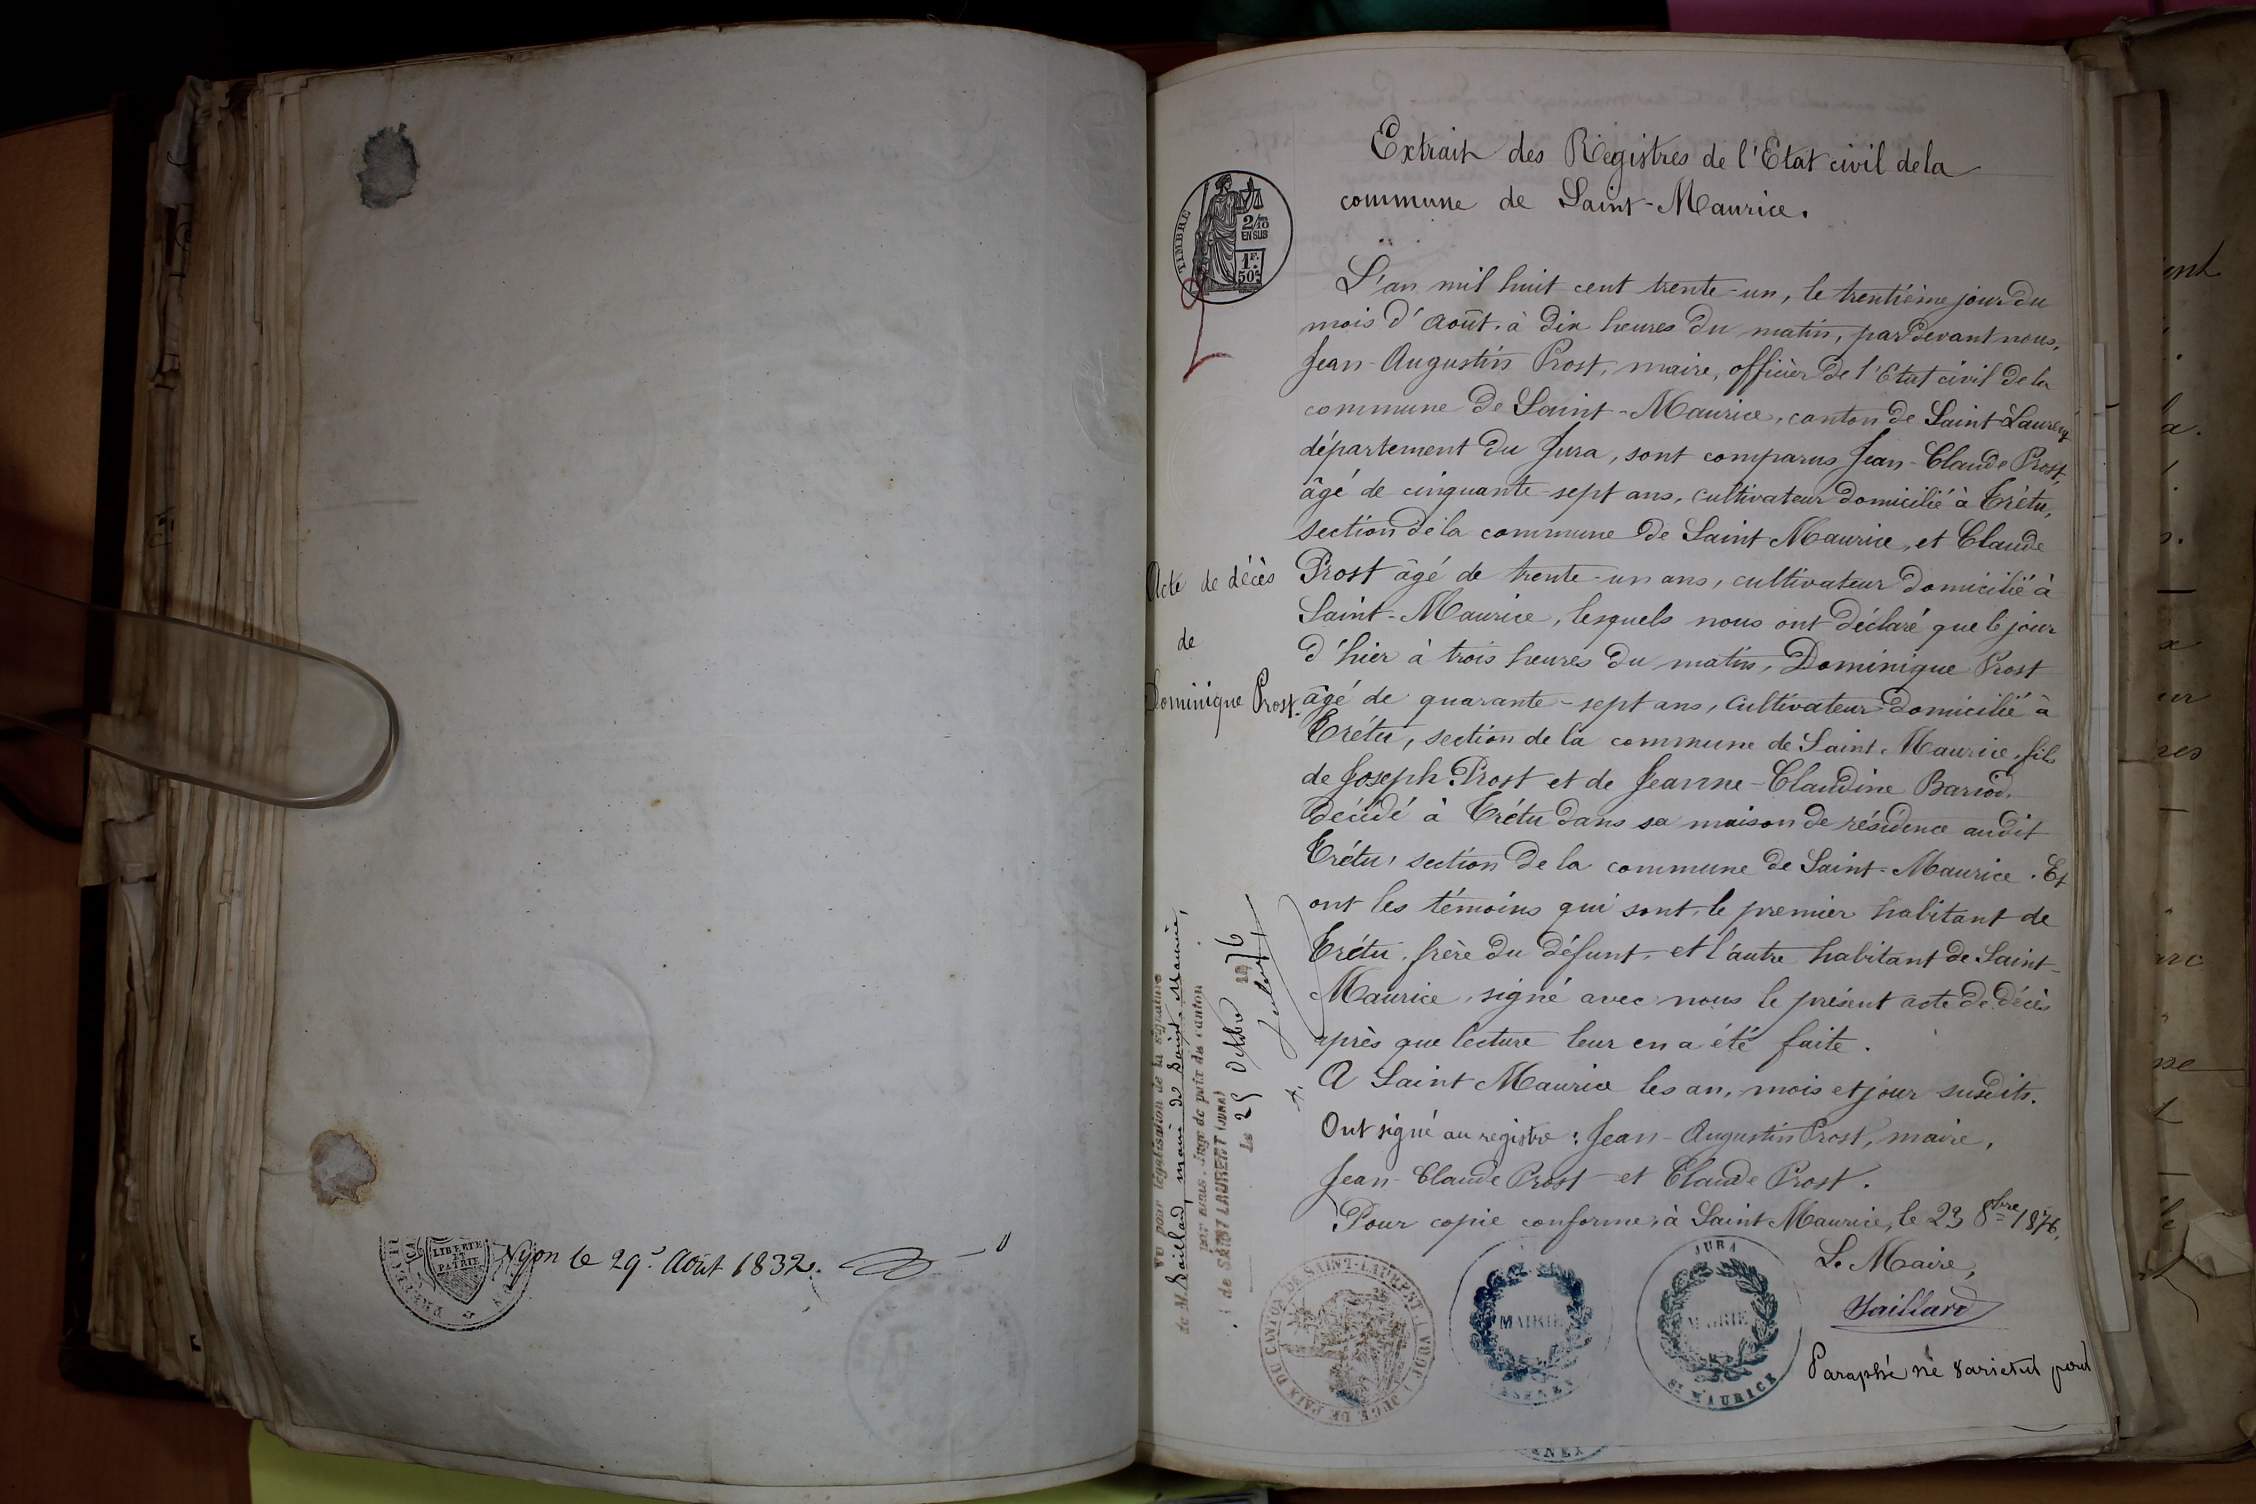 Nyon le 29. Août 1832.
LIBERTE
ET
PATRIE
Extrait des Registres de l'Etat civil de la
commune de Saint-Maurice.
TIMBRE
2/10
EN SUS
1F.
50c
L'an mil huit cent trente-un, le trentième jour du
mois d'Août, à dix heures du matin, pardevant nous,
Jean-Augustin Prost, maire, officier de l'Etat civil de la
commune de Saint-Maurice, canton de Saint Laurent
département du Jura, sont comparus Jean-Claude Prost,
âgé de cinquante-sept ans, cultivateur domicilié à Trétu,
section de la commune de Saint Maurice, et Claude
Prost âgé de trente-un ans, cultivateur domicilié à
Saint-Maurice, lesquels nous ont déclaré que le jour
d'hier à trois heures du matin, Dominique Prost
âgé de quarante-sept ans, cultivateur domicilié à
Trétu, section de la commune de Saint-Maurice, fils
de Joseph Prost et de Jeanne-Claudine Bariod,
décédé à Trétu dans sa maison de résidence audit
Trétu, section de la commune de Saint-Maurice. Et
ont les témoins qui sont, le premier habitant de
Trétu, frère du défunt, et l'autre habitant de Saint-
Maurice, signé avec nous le présent acte de décès
après que lecture leur en a été faite.
A Saint Maurice les an, mois et jour susdits.
Ont signé au registre: Jean-Augustin Prost, maire,
Jean-Claude Prost et Claude Prost.
Pour copie conforme, à Saint Maurice, le 23 8bre 1876.
Le Maire,
Saillard
Paraphé ne varietur
Acte de décès
de
Dominique Prost.
Vu pour légalisation de la signature
de M. Saillard, maire de Saint-Maurice,
par nous, Juge de paix du canton
de SAINT LAURENT (JURA)
Le 25 Octobre 1876
CANTON DE SAINT-LAURENT (JURA) JUGE DE PAIX DU
MAIRIE
JURA
MAIRIE
ST MAURICE